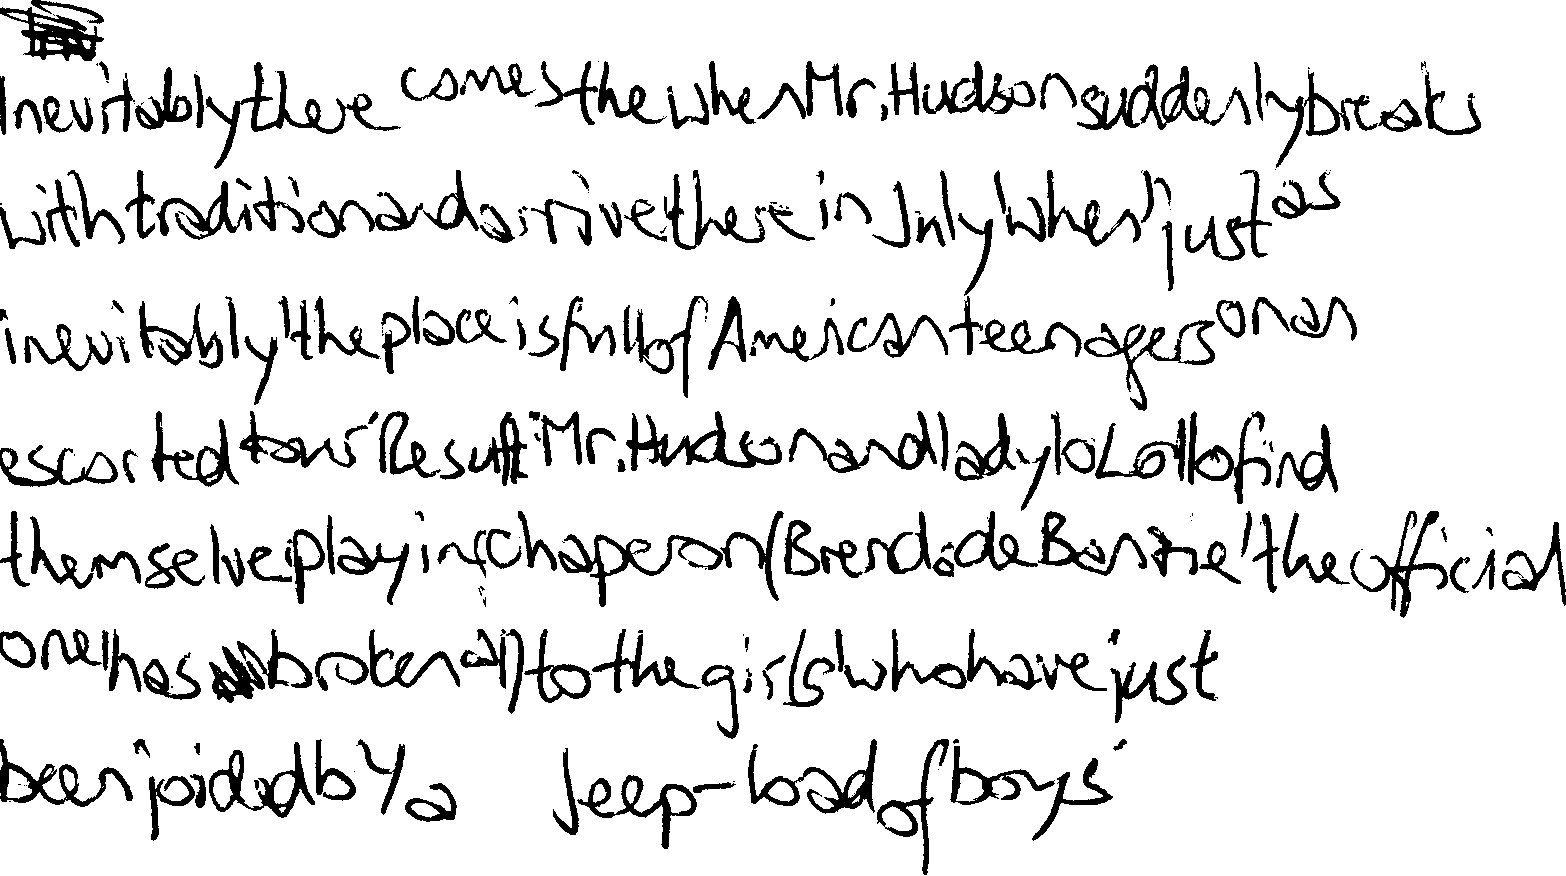 Inevitably there comes the when Mr. Hudson suddenly breaks
with tradition and arrive there in July when, just as
inevitably, the place is full of American teenagers on an
escorted tour. Result: Mr. Hudson and lady lo Lollo find
themselve playing chaperon (Brenda de Banzie, the official
one, has broken a) to the girls, who have just
been joided by a Jeep-load of boys.